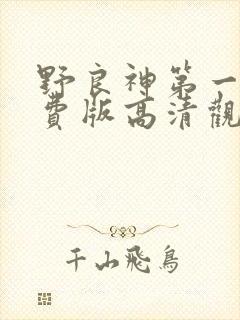 野良神第一
費版高清觀
千山飛鳥